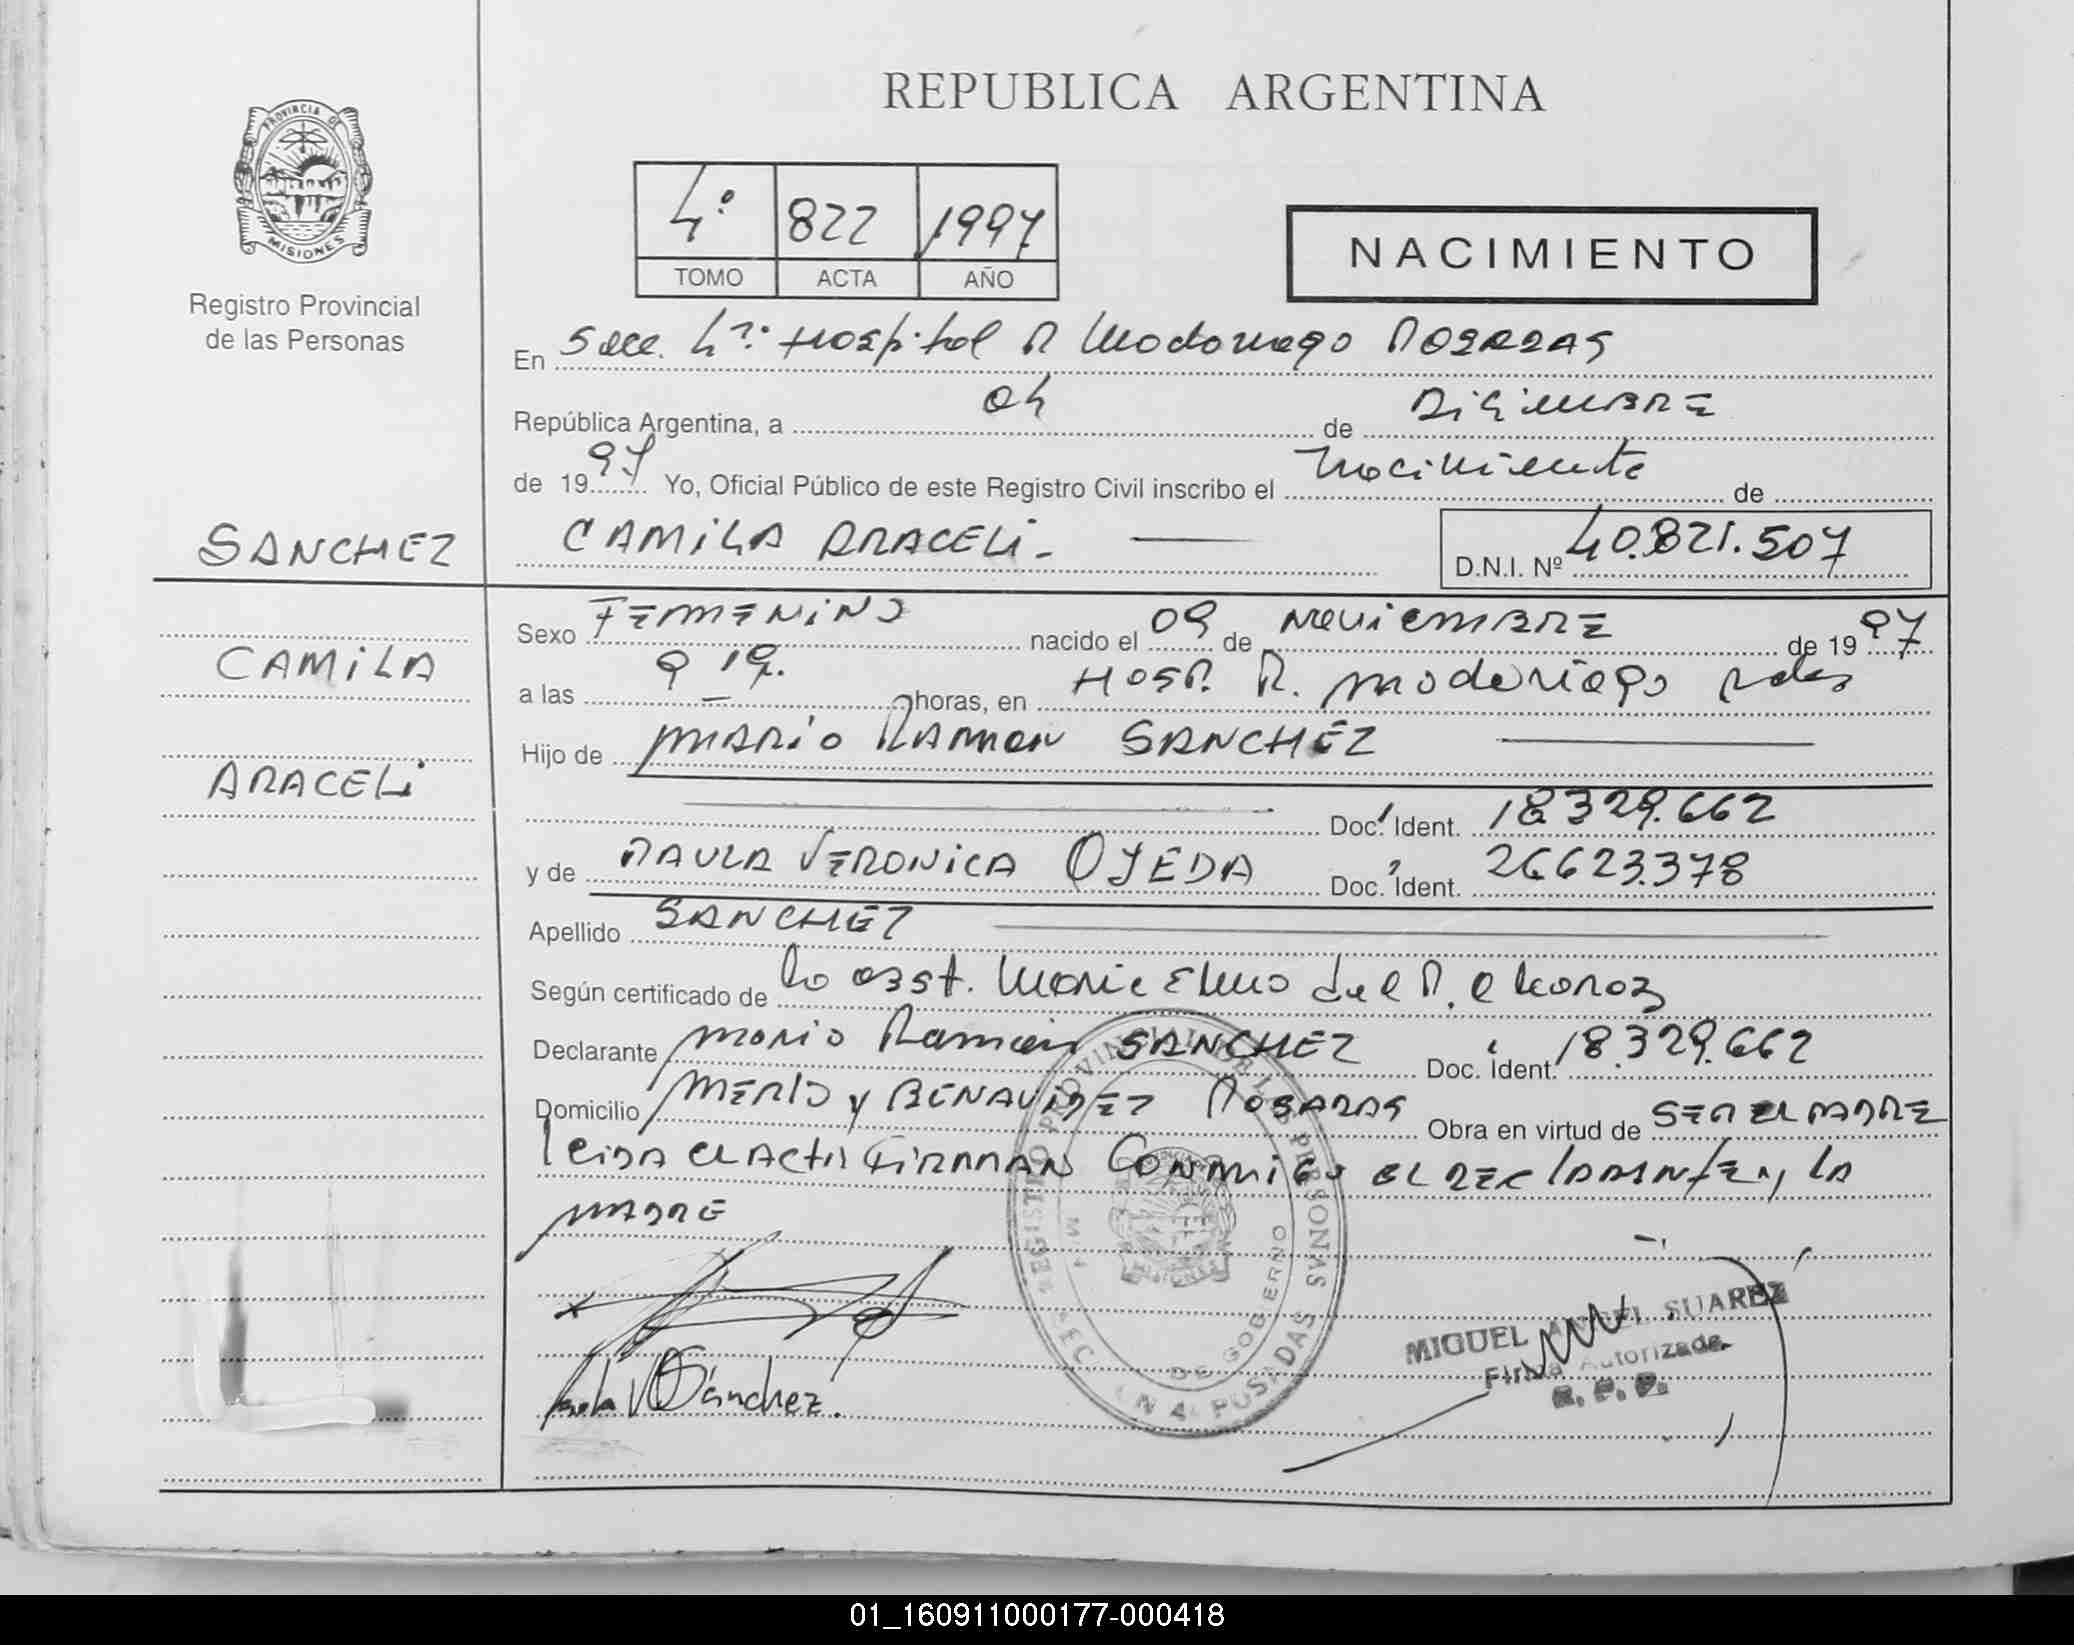 REPUBLICA ARGENTINA
PROVINCIA DE
MISIONES
Registro Provincial
de las Personas
4º 822 1997
TOMO ACTA AÑO
NACIMIENTO
En Secc. 4ª. Hospital R Madariaga POSADAS
República Argentina, a 04 de DiCiEMBRE
de 1997 Yo, Oficial Público de este Registro Civil inscribo el nacimiento de
SANCHEZ
CAMiLA ARACELi.-
D.N.I. Nº 40.821.507
Sexo FEMENiNO nacido el 09 de NOViEMBRE de 1997
CAMiLA
a las 9 19. horas, en HOSP. R. Madariaga Pdas
Hijo de MARiO RAMON SANCHEZ
ARACELi
Doc. Ident. 18.329.662
y de PAULA VERONiCA OJEDA Doc. Ident. 26.623.378
Apellido SANCHEZ
Según certificado de la obst. Maria Elena del P.
Declarante Mario Ramón SANCHEZ Doc. Ident. 18.329.662
Domicilio MERLO y BENAViDEZ POSADAS Obra en virtud de SER EL PADRE
LEiDA EL ACTA FiRMAN CONMiGO EL DECLARANTE y LA
MADRE
REGISTRO PROVINCIAL DE LAS PERSONAS
DE GOBIERNO
SECCION 4ª POSADAS
MIGUEL ANGEL SUAREZ
Firma Autorizada
R. P. P.
Paula VO Sánchez.
01_160911000177-000418